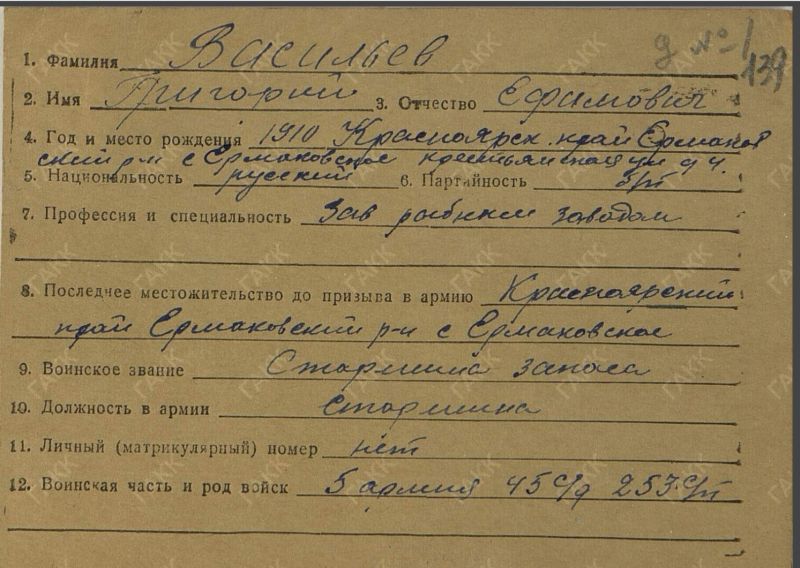 д № 1/139
1. Фамилия Васильев
2. Имя Григорий 3. Отчество Ефимович
4. Год и место рождения 1910 Красноярск. край Ермаков
ский р-н с Ермаковское крестьянская ул д 4.
5. Национальность русский 6. Партийность б/п
7. Профессия и специальность Зав рыбным заводом
8. Последнее местожительство до призыва в армию Красноярский
край Ермаковский р-н с Ермаковское
9. Воинское звание Старшина запаса
10. Должность в армии старшина
11. Личный (матрикулярный) номер нет
12. Воинская часть и род войск 5 армия 45 с/д 253 с/п
ГАКК